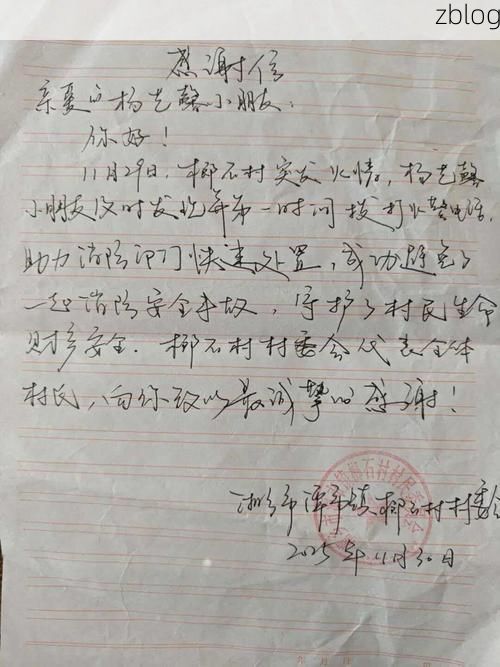 zblog
感谢信
亲爱的杨艺馨小朋友：
你好！
11月29日，椰石村突发火情，杨艺馨
小朋友及时发现并第一时间拨打火警电话，
助力消防部门快速处置，成功避免了
一起消防安全事故，守护了村民生命
财产安全．椰石村村委会代表全体
村民，向你致以最诚挚的感谢！
市潭市镇椰石村村委会
2025年11月30日
年 月 日